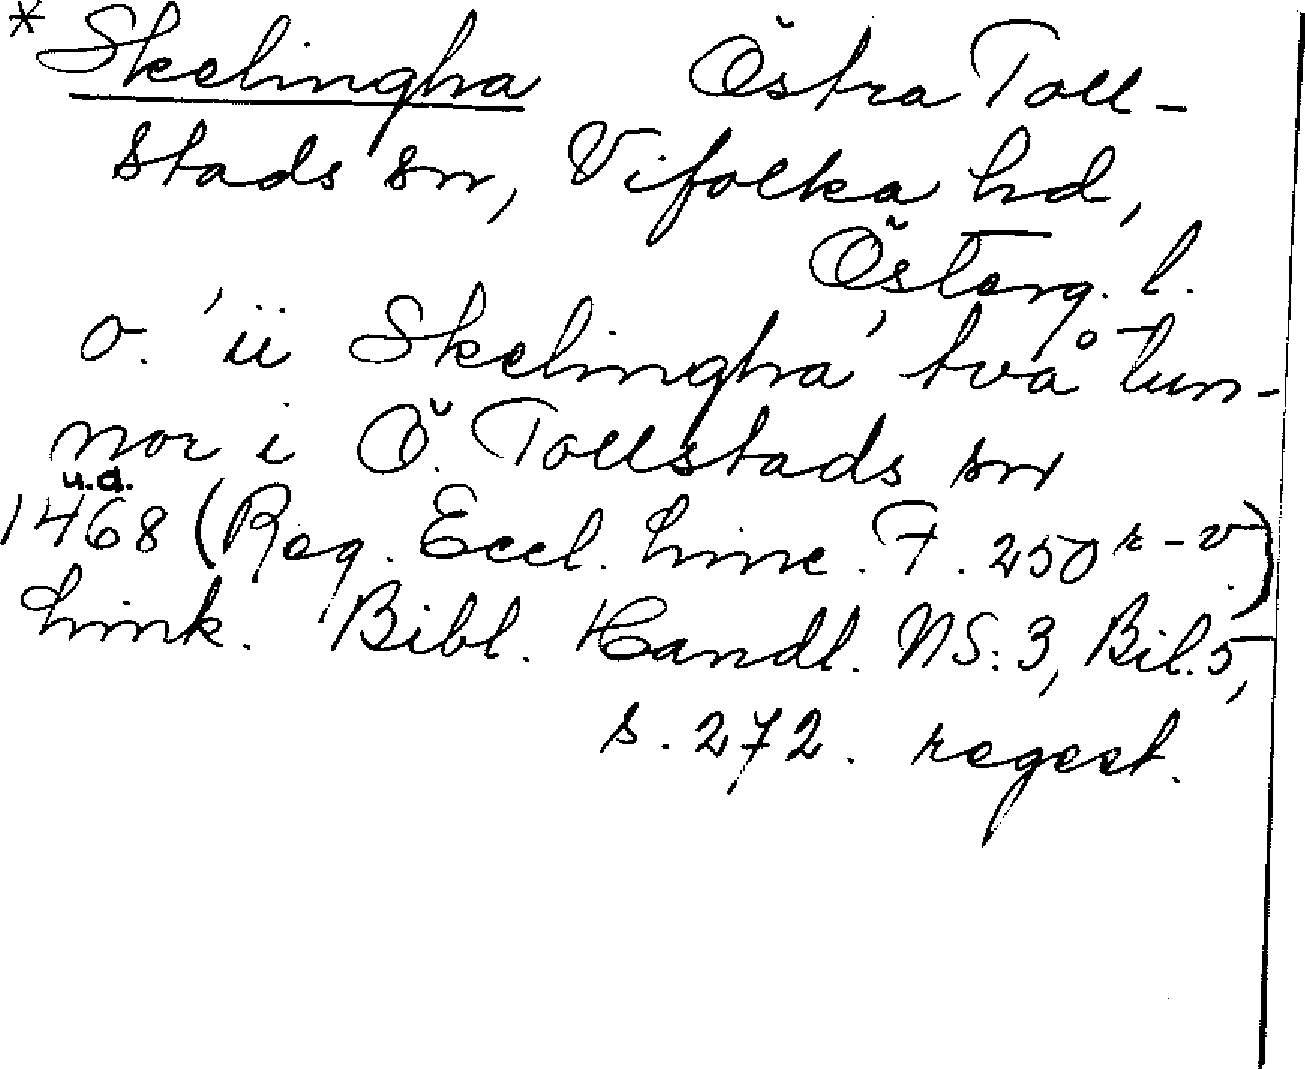 * Skelingha Östra Toll-
stads sn, Vifolka hd,
Österg. l.
o. 'ii Skelingha' två tun-
nor i Ö. Tollstads sn
u.d.
1468 (Reg. Eccl. Linc. F. 250 r-v.)
Link. Bibl. Handl. NS: 3, Bil. 5,
s. 272. regest.